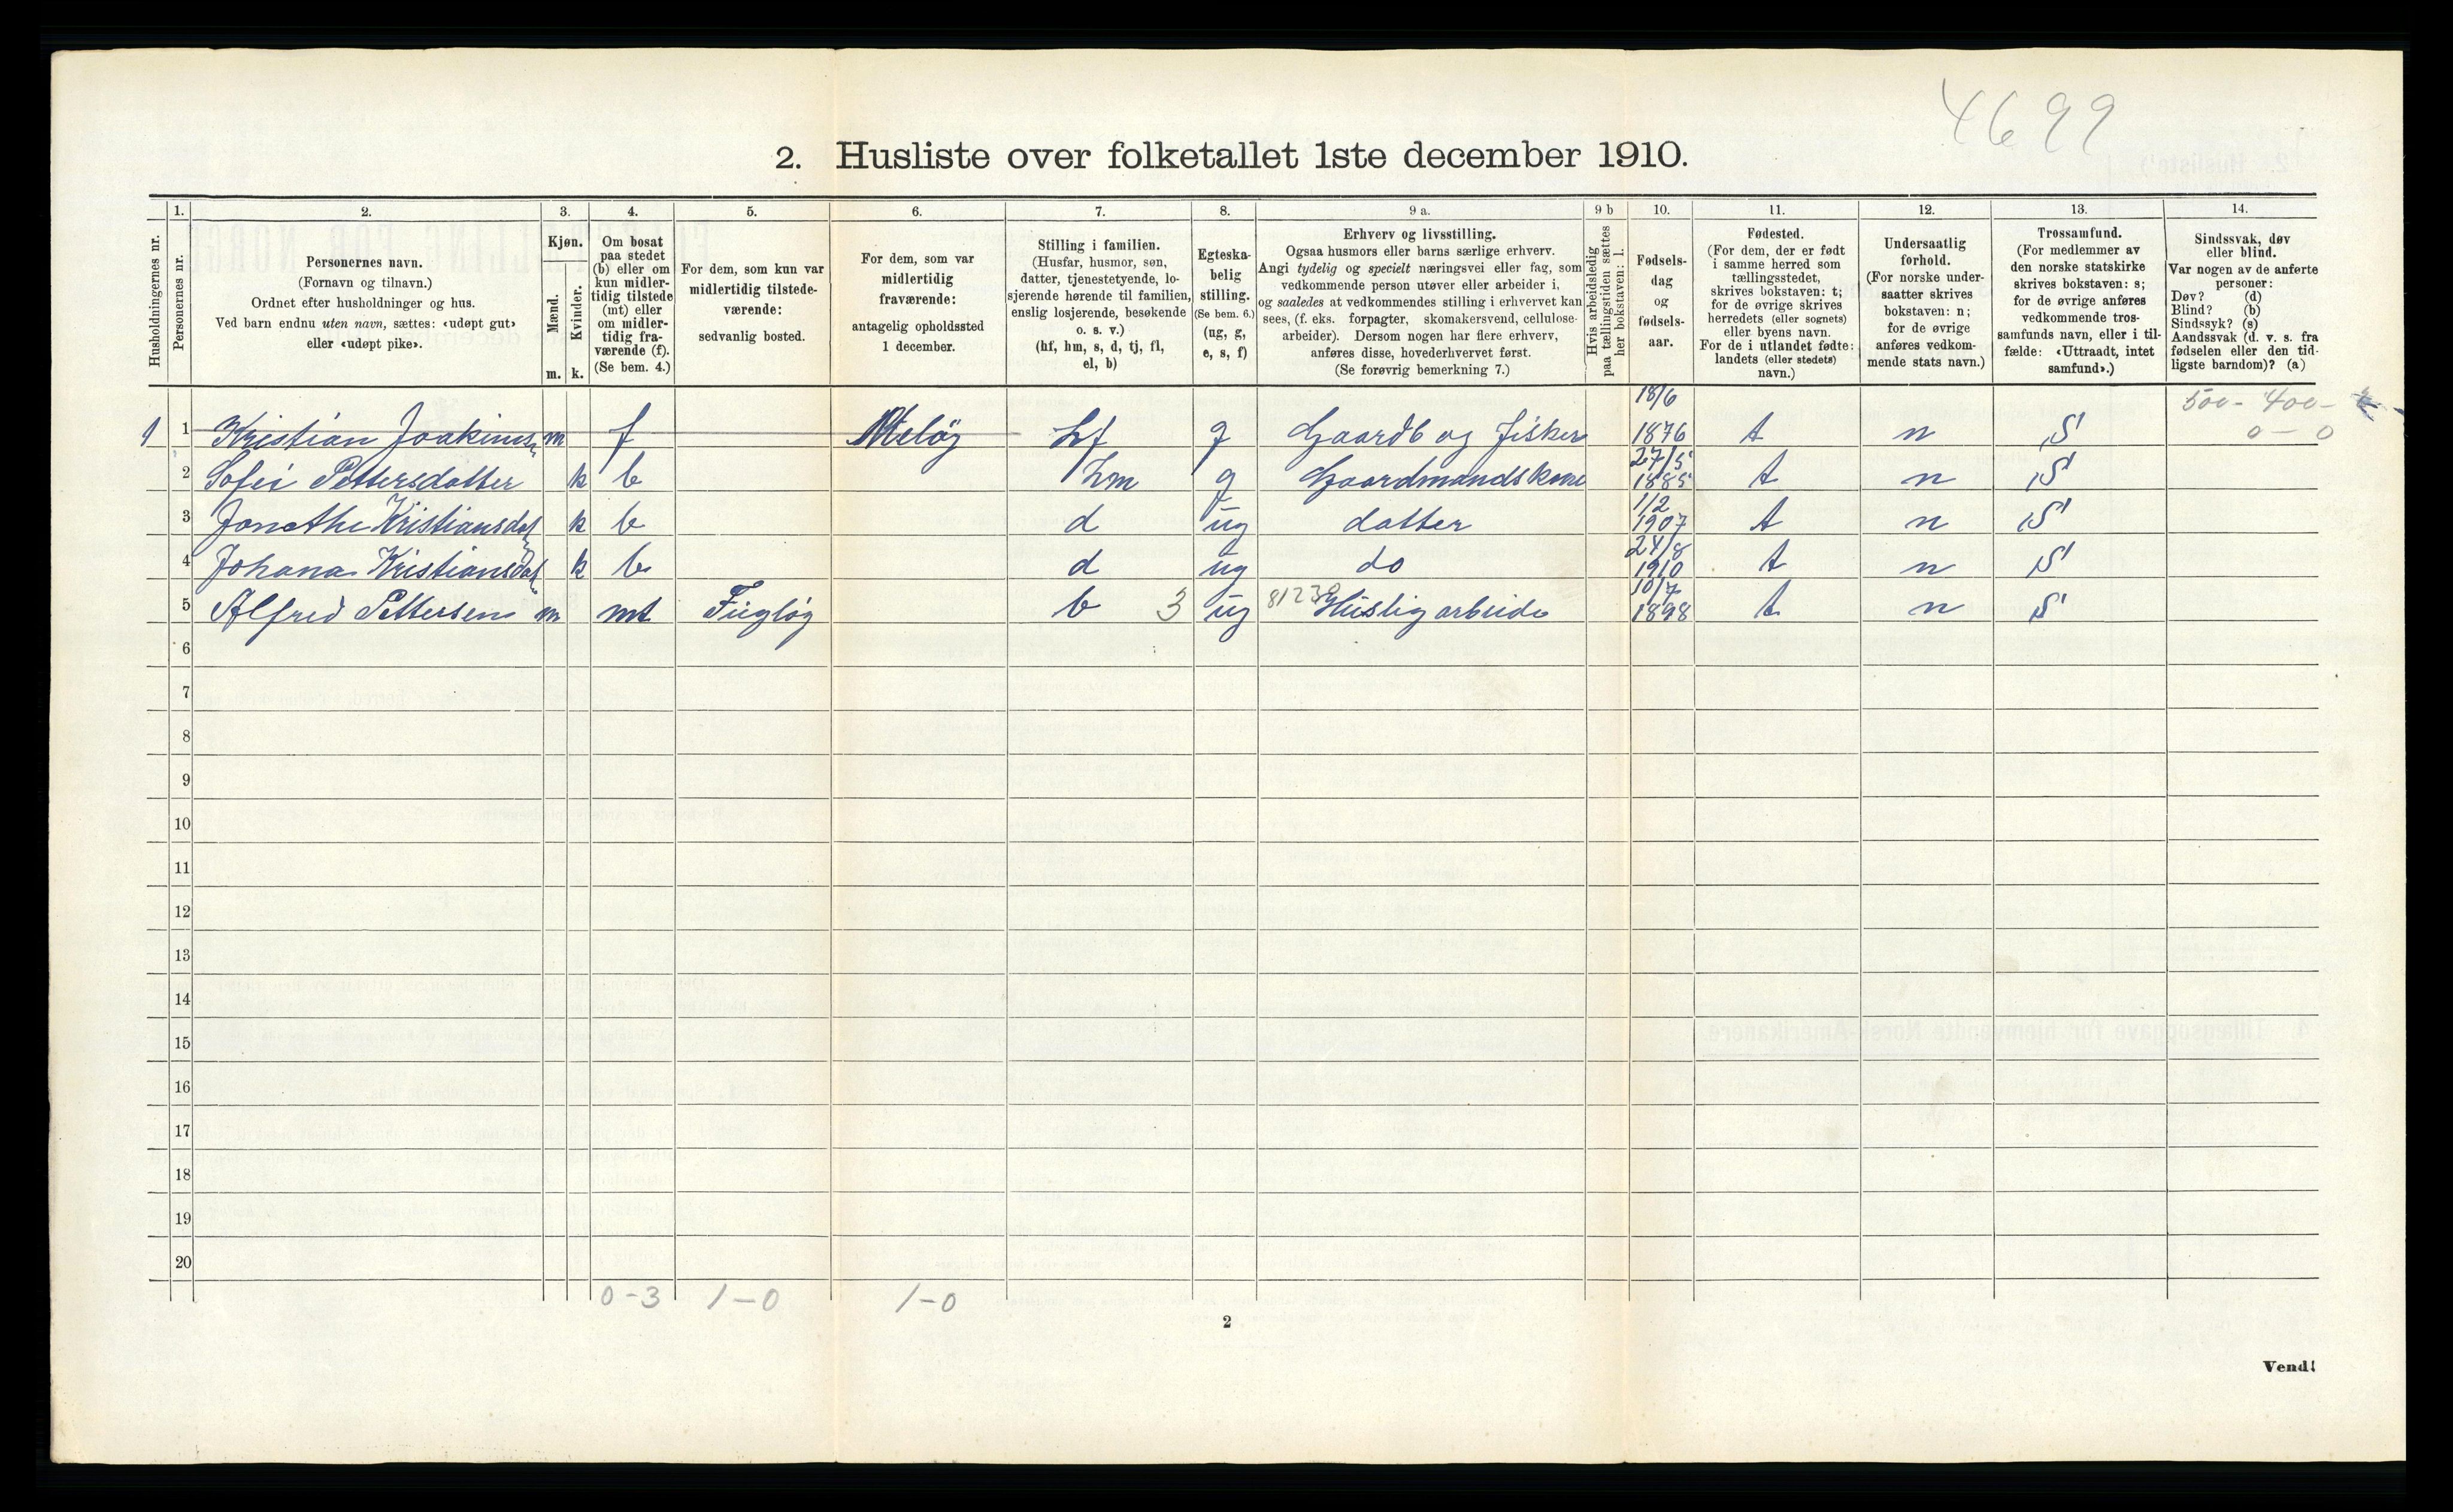 4699
2. Husliste over folketallet 1ste december 1910.
Husholdningernes nr.
1. Personernes nr.
2. Personernes navn. (Fornavn og tilnavn.) Ordnet efter husholdninger og hus. Ved barn endnu uten navn, sættes: «udøpt gut» eller «udøpt pike».
3. Kjøn. Mænd. m. Kvinder. k.
4. Om bosat paa stedet (b) eller om kun midlertidig tilstede (mt) eller om midlertidig fraværende (f). (Se bem. 4.)
5. For dem, som kun var midlertidig tilstedeværende: sedvanlig bosted.
6. For dem, som var midlertidig fraværende: antagelig opholdssted 1 december.
7. Stilling i familien. (Husfar, husmor, søn, datter, tjenestetyende, losjerende hørende til familien, enslig losjerende, besøkende o. s. v.) (hf, hm, s, d, tj, fl, el, b)
8. Egteskabelig stilling. (Se bem. 6.) (ug, g, e, s, f)
9 a. Erhverv og livsstilling. Ogsaa husmors eller barns særlige erhverv. Angi tydelig og specielt næringsvei eller fag, som vedkommende person utøver eller arbeider i, og saaledes at vedkommendes stilling i erhvervet kan sees, (f. eks. forpagter, skomakersvend, cellulosearbeider). Dersom nogen har flere erhverv, anføres disse, hovederhvervet først. (Se forøvrig bemerkning 7.)
9 b Hvis arbeidsledig paa tællingstiden sættes her bokstaven: l.
10. Fødselsdag og fødselsaar.
11. Fødested. (For dem, der er født i samme herred som tællingsstedet, skrives bokstaven: t; for de øvrige skrives herredets (eller sognets) eller byens navn. For de i utlandet fødte: landets (eller stedets) navn.)
12. Undersaatlig forhold. (For norske undersaatter skrives bokstaven: n; for de øvrige anføres vedkommende stats navn.)
13. Trossamfund. (For medlemmer av den norske statskirke skrives bokstaven: s; for de øvrige anføres vedkommende trossamfunds navn, eller i tilfælde: «Uttraadt, intet samfund».)
14. Sindssvak, døv eller blind. Var nogen av de anførte personer: Døv? (d) Blind? (b) Sindssyk? (s) Aandssvak (d. v. s. fra fødselen eller den tidligste barndom)? (a)
500 - 400 -
0 - 0
1 1 Kristian Joakims m f Meløy hf g Gaardb og fisker 18/6 1876 t n S
2 Sofie Pettersdatter k b hm g Gaardmandskone 27/5 1885 t n S
3 Jonethe Kristiansdat k b d ug datter 1/2 1907 t n S
4 Johana Kristiansdat k b d ug do 24/8 1910 t n S
5 Alfred Pettersen m mt Fugløy b 3 ug Huslig arbeide 10/7 1898 t n S
6
7
8
9
10
11
12
13
14
15
16
17
18
19
20
0 - 3 1 - 0 1 - 0
2
Vend!